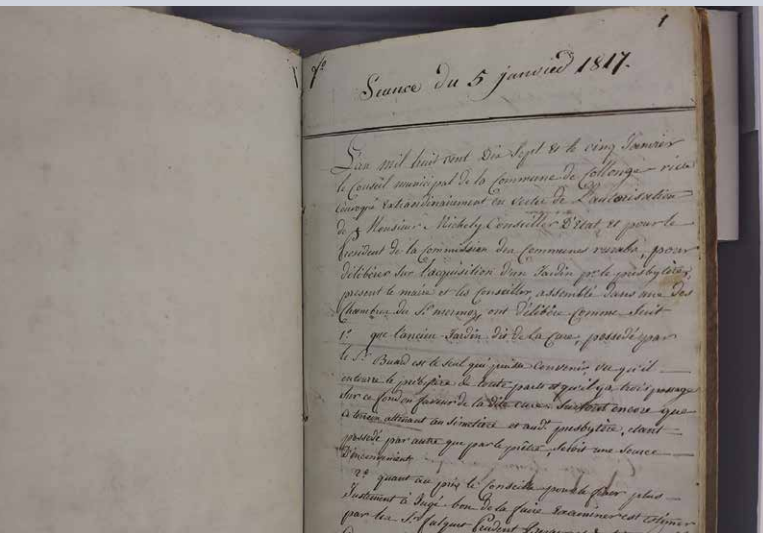 1
Seance du 5 janvier 1817.
L'an mil huit cent Dix Sept et le cinq Janvier
le Conseil municipal de la Commune de Collonge
convoqué Extraordinairement en suite de L'autorisation
de Monsieur Michely Conseiller D'Etat et pour le
President de la Commission des Communes rurales, pour
délibérer sur l'acquisition d'un Jardin pr. le presbytère,
présent le maire et les Conseiller assemblé dans une des
Chambre du Sr. mermoz, ont délibéré Comme Suit
1º. que l'ancien Jardin dit de La Cure, possedé par
le Sr. Buard est le seul qui puisse Convenir, vu qu'il
entoure le presbytère de toute parts et qu'il y a trois passage
Sur ce fond en faveur de la dite cure. Surtout encore que
ce terrein attenant au Simetière et aud. presbytère, étant
possedé par autre que par le prêtre, seroit une Source
2º. quant au prix le Conseille pour le fixer plus
Justement à Jugé bon de la faire Examiner et Estimer
par les Srs.